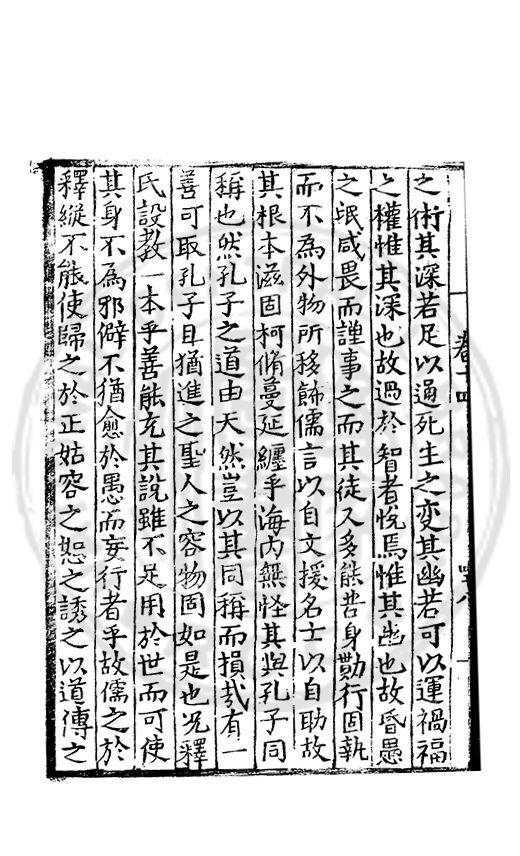 之術其深若足以通死生之变其幽若可以運禍福
之權惟其深也故過於智者恱焉惟其幽也故昏愚
之氓咸畏而謹事之而其徒又多能苦身勤行固執
而不為外物所移飾儒言以自文援名士以自助故
其根本滋固柯脩蔓延纏乎海内無怪其與孔子同
稱也然孔子之道由天然豈以其同稱而損哉有一
善可取孔子且猶進之聖人之容物固如是也况釋
氏設教一本乎善能充其說雖不足用於世而可使
其身不為邪僻不猶愈於愚而妄行者乎故儒之於
釋縱不能使歸之於正姑容之恕之誘之以道傳之
卷十四
四八